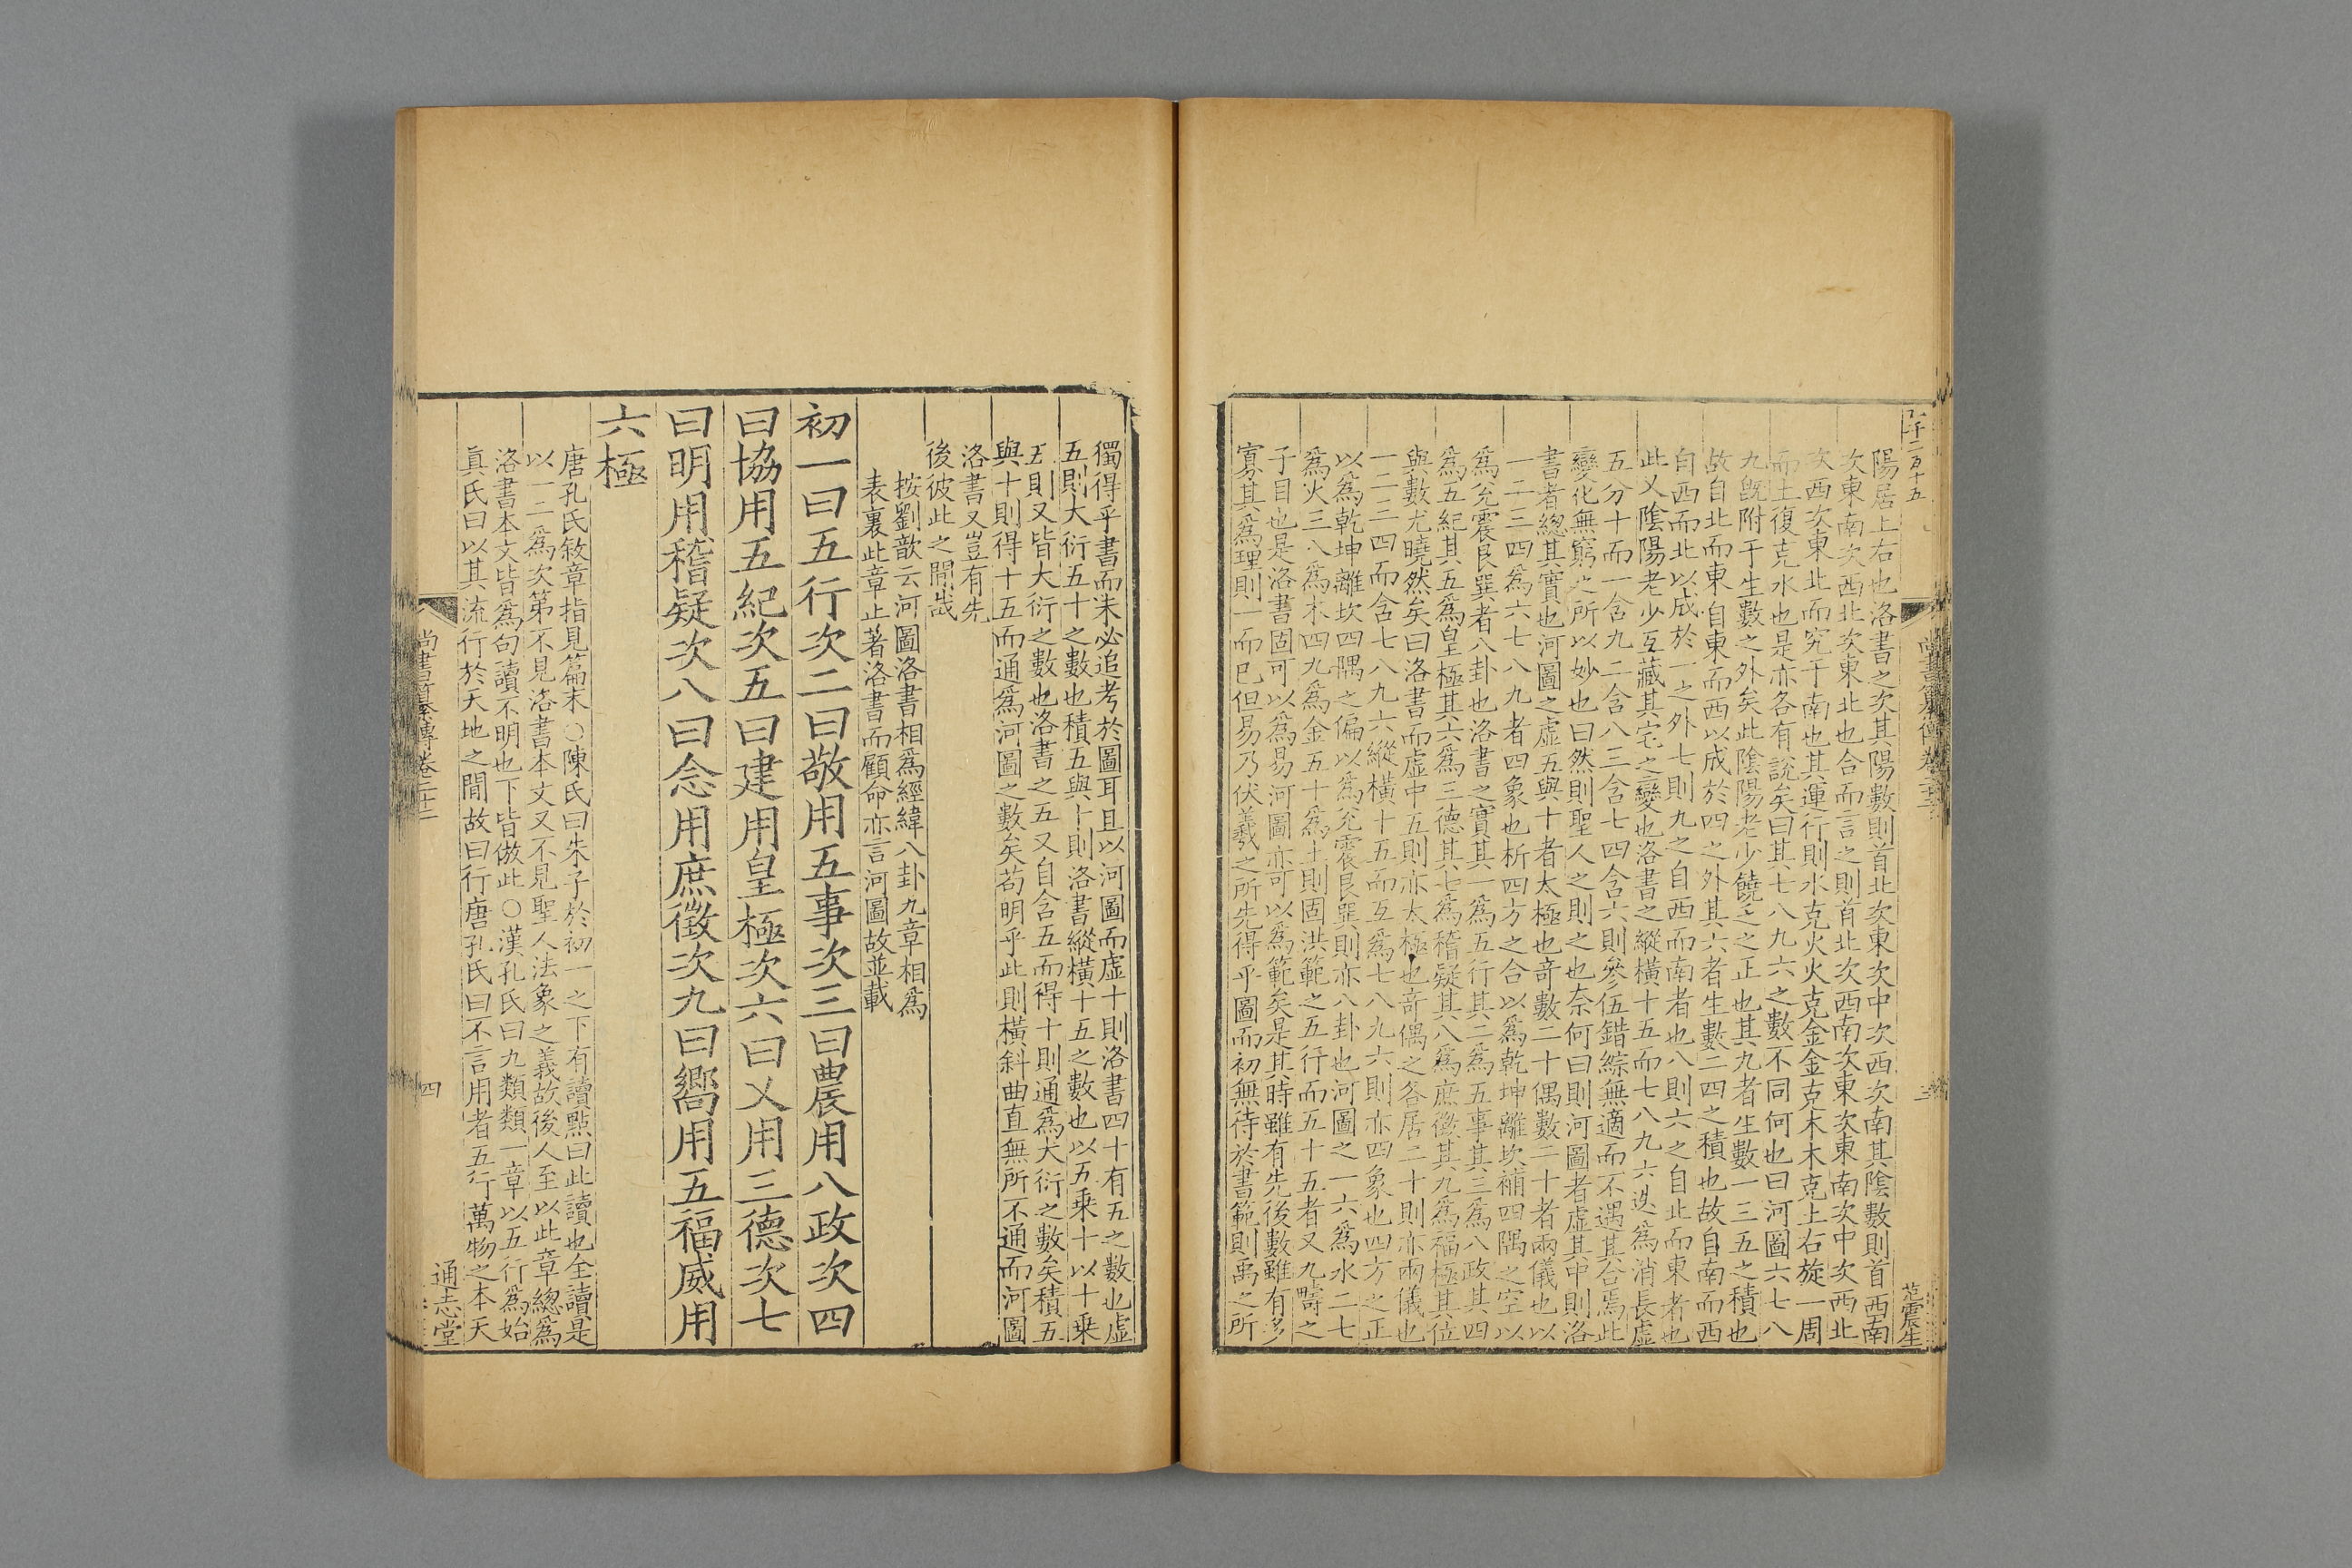 陽居上右也洛書之次其陽數則首北次東次中次西次南其陰數則首西南
次東南次西北次東北也合而言之則首北次西南次東次東南次中次西北
次西次東北而究于南也其運行則水克火火克金金克木木克土右旋一周
而土復克水也是亦各有說矣曰其七八九六之數不同何也曰河圖六七八
九旣附于生數之外矣此陰陽老少饒乏之正也其九者生數一三五之積也
故自北而東自東而西以成於四之外其六者生數二四之積也故自南而西
自西而北以成於一之外七則九之自西而南者也八則六之自北而東者也
此又陰陽老少互藏其宅之變也洛書之縱橫十五而七八九六迭為消長虛
五分十而一含九二含八三含七四含六則參伍錯綜無適而不遇其合焉此
變化無窮之所以妙也曰然則聖人之則之也奈何曰則河圖者虛其中則洛
書者總其實也河圖之虛五與十者太極也奇數二十偶數二十者兩儀也以
一二三四為六七八九者四象也析四方之合以為乾坤離坎補四隅之空以
為兌震艮巽者八卦也洛書之實其一為五行其二為五事其三為八政其四
為五紀其五為皇極其六為三德其七為稽疑其八為庶徵其九為福極其位
與數尤曉然矣曰洛書而虛中五則亦太極也奇偶之各居二十則亦兩儀也
一二三四而含七八九六縱橫十五而互為七八九六則亦四象也四方之正
以為乾坤離坎四隅之偏以為兌震艮巽則亦八卦也河圖之一六為水二七
為火三八為木四九為金五十為土則固洪範之五行而五十五者又九疇之
子目也是洛書固可以為易河圖亦可以為範矣是其時雖有先後數雖有多
寡其為理則一而已但易乃伏羲之所先得乎圖而初無待於書範則禹之所
范震生
獨得乎書而未必追考於圖耳且以河圖而虛十則洛書四十有五之數也虛
五則大衍五十之數也積五與十則洛書縱橫十五之數也以五乘十以十乘
五則又皆大衍之數也洛書之五又自含五而得十則通為大衍之數矣積五
與十則得十五而通為河圖之數矣苟明乎此則橫斜曲直無所不通而河圖
洛書又豈有先
後彼此之間哉
按劉歆云河圖洛書相為經緯八卦九章相為
表裏此章止著洛書而顧命亦言河圖故並載
初一曰五行次二曰敬用五事次三曰農用八政次四
曰協用五紀次五曰建用皇極次六曰乂用三德次七
曰明用稽疑次八曰念用庶徵次九曰嚮用五福威用
六極
唐孔氏敘章指見篇末○陳氏曰朱子於初一之下有讀點曰此讀也全讀是
以一二為次第不見洛書本文又不見聖人法象之義故後人至以此章總為
洛書本文皆為句讀不明也下皆倣此○漢孔氏曰九類類一章以五行為始
真氏曰以其流行於天地之間故曰行唐孔氏曰不言用者五行萬物之本天
尚書纂傳卷二十二
四
通志堂